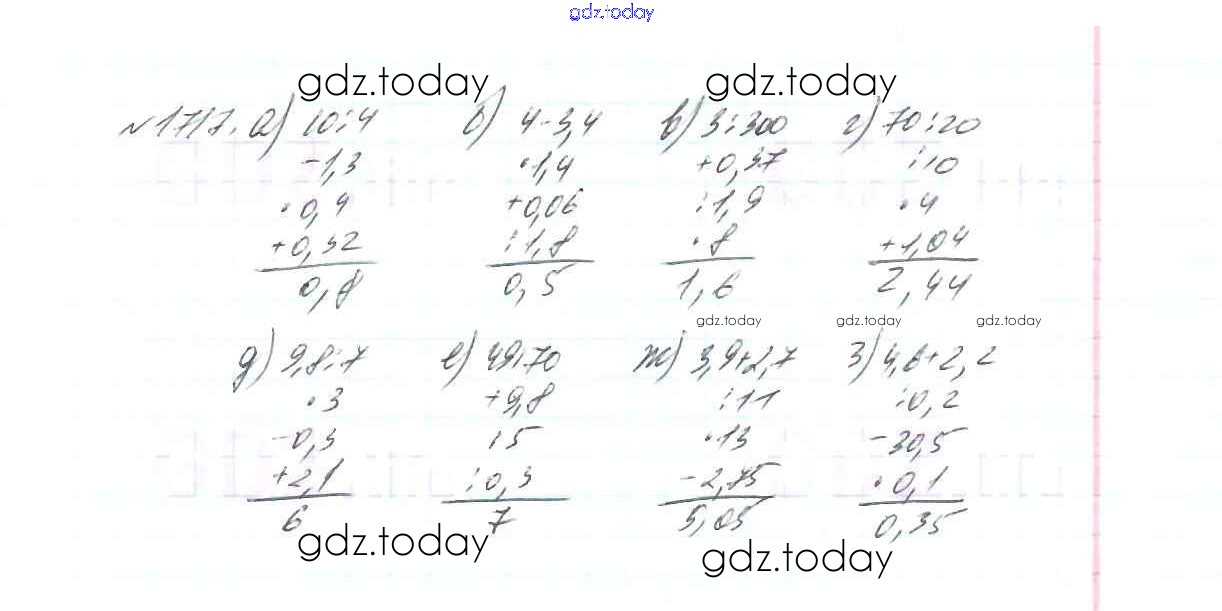 gdz.today
gdz.today gdz.today
№1717. а) 10:4 б) 4-3,4 в) 3:300 г) 70:20
-1,3 ·1,4 +0,37 :10
·0,4 +0,06 :1,9 ·4
+0,32 :1,8 ·8 +1,04
0,8 0,5 1,6 2,44
gdz.today gdz.today gdz.today
д) 9,8:7 е) 49:70 ж) 3,9+2,7 з) 4,6+2,2
·3 +9,8 :11 :0,2
-0,3 :5 ·13 -30,5
+2,1 :0,3 -2,75 ·0,1
6 7 5,05 0,35
gdz.today gdz.today